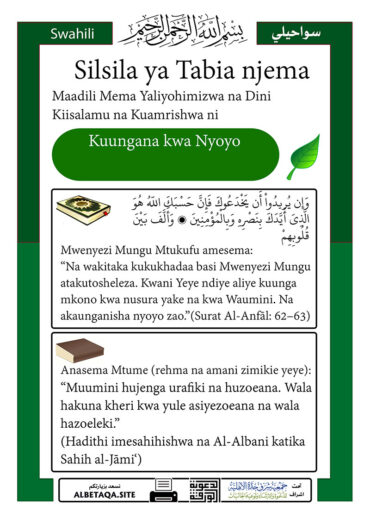 Swahili
بِسْمِ اللَّهِ الرَّحْمَٰنِ الرَّحِيمِ
سواحيلي
Silsila ya Tabia njema
Maadili Mema Yaliyohimizwa na Dini
Kiisalamu na Kuamrishwa ni
Kuungana kwa Nyoyo
وَإِن يُرِيدُواْ أَن يَخْدَعُوكَ فَإِنَّ حَسْبَكَ اللَّهُ هُوَ
الَّذِىٓ أَيَّدَكَ بِنَصْرِهِ وَبِالْمُؤْمِنِينَ ۞ وَأَلَّفَ بَيْنَ
قُلُوبِهِمْ
Mwenyezi Mungu Mtukufu amesema:
“Na wakitaka kukukhadaa basi Mwenyezi Mungu
atakutosheleza. Kwani Yeye ndiye aliye kuunga
mkono kwa nusura yake na kwa Waumini. Na
akaunganisha nyoyo zao.”(Surat Al-Anfāl: 62–63)
Anasema Mtume (rehma na amani zimikie yeye):
“Muumini hujenga urafiki na huzoeana. Wala
hakuna kheri kwa yule asiyezoeana na wala
hazoeleki.”
(Hadithi imesahihishwa na Al-Albani katika
Sahih al-Jāmi‘)
نسعد بزيارتكم
ALBETAQA.SITE
الدعوية
الورقة
تحت
اشراف